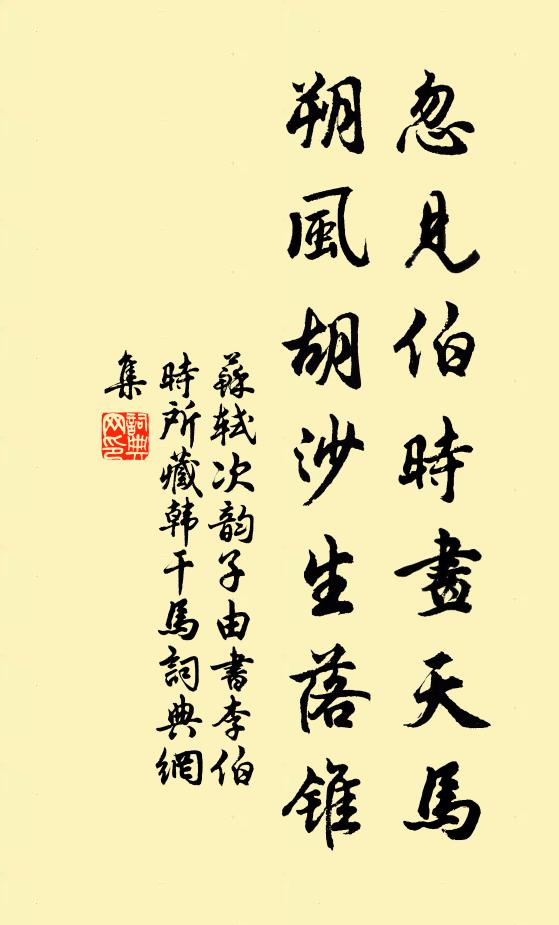 忽見伯時畫天馬
朔風胡沙生落錐
蘇軾次韵子由書李伯
時所藏韓干馬詞典網
集
詞典
网印